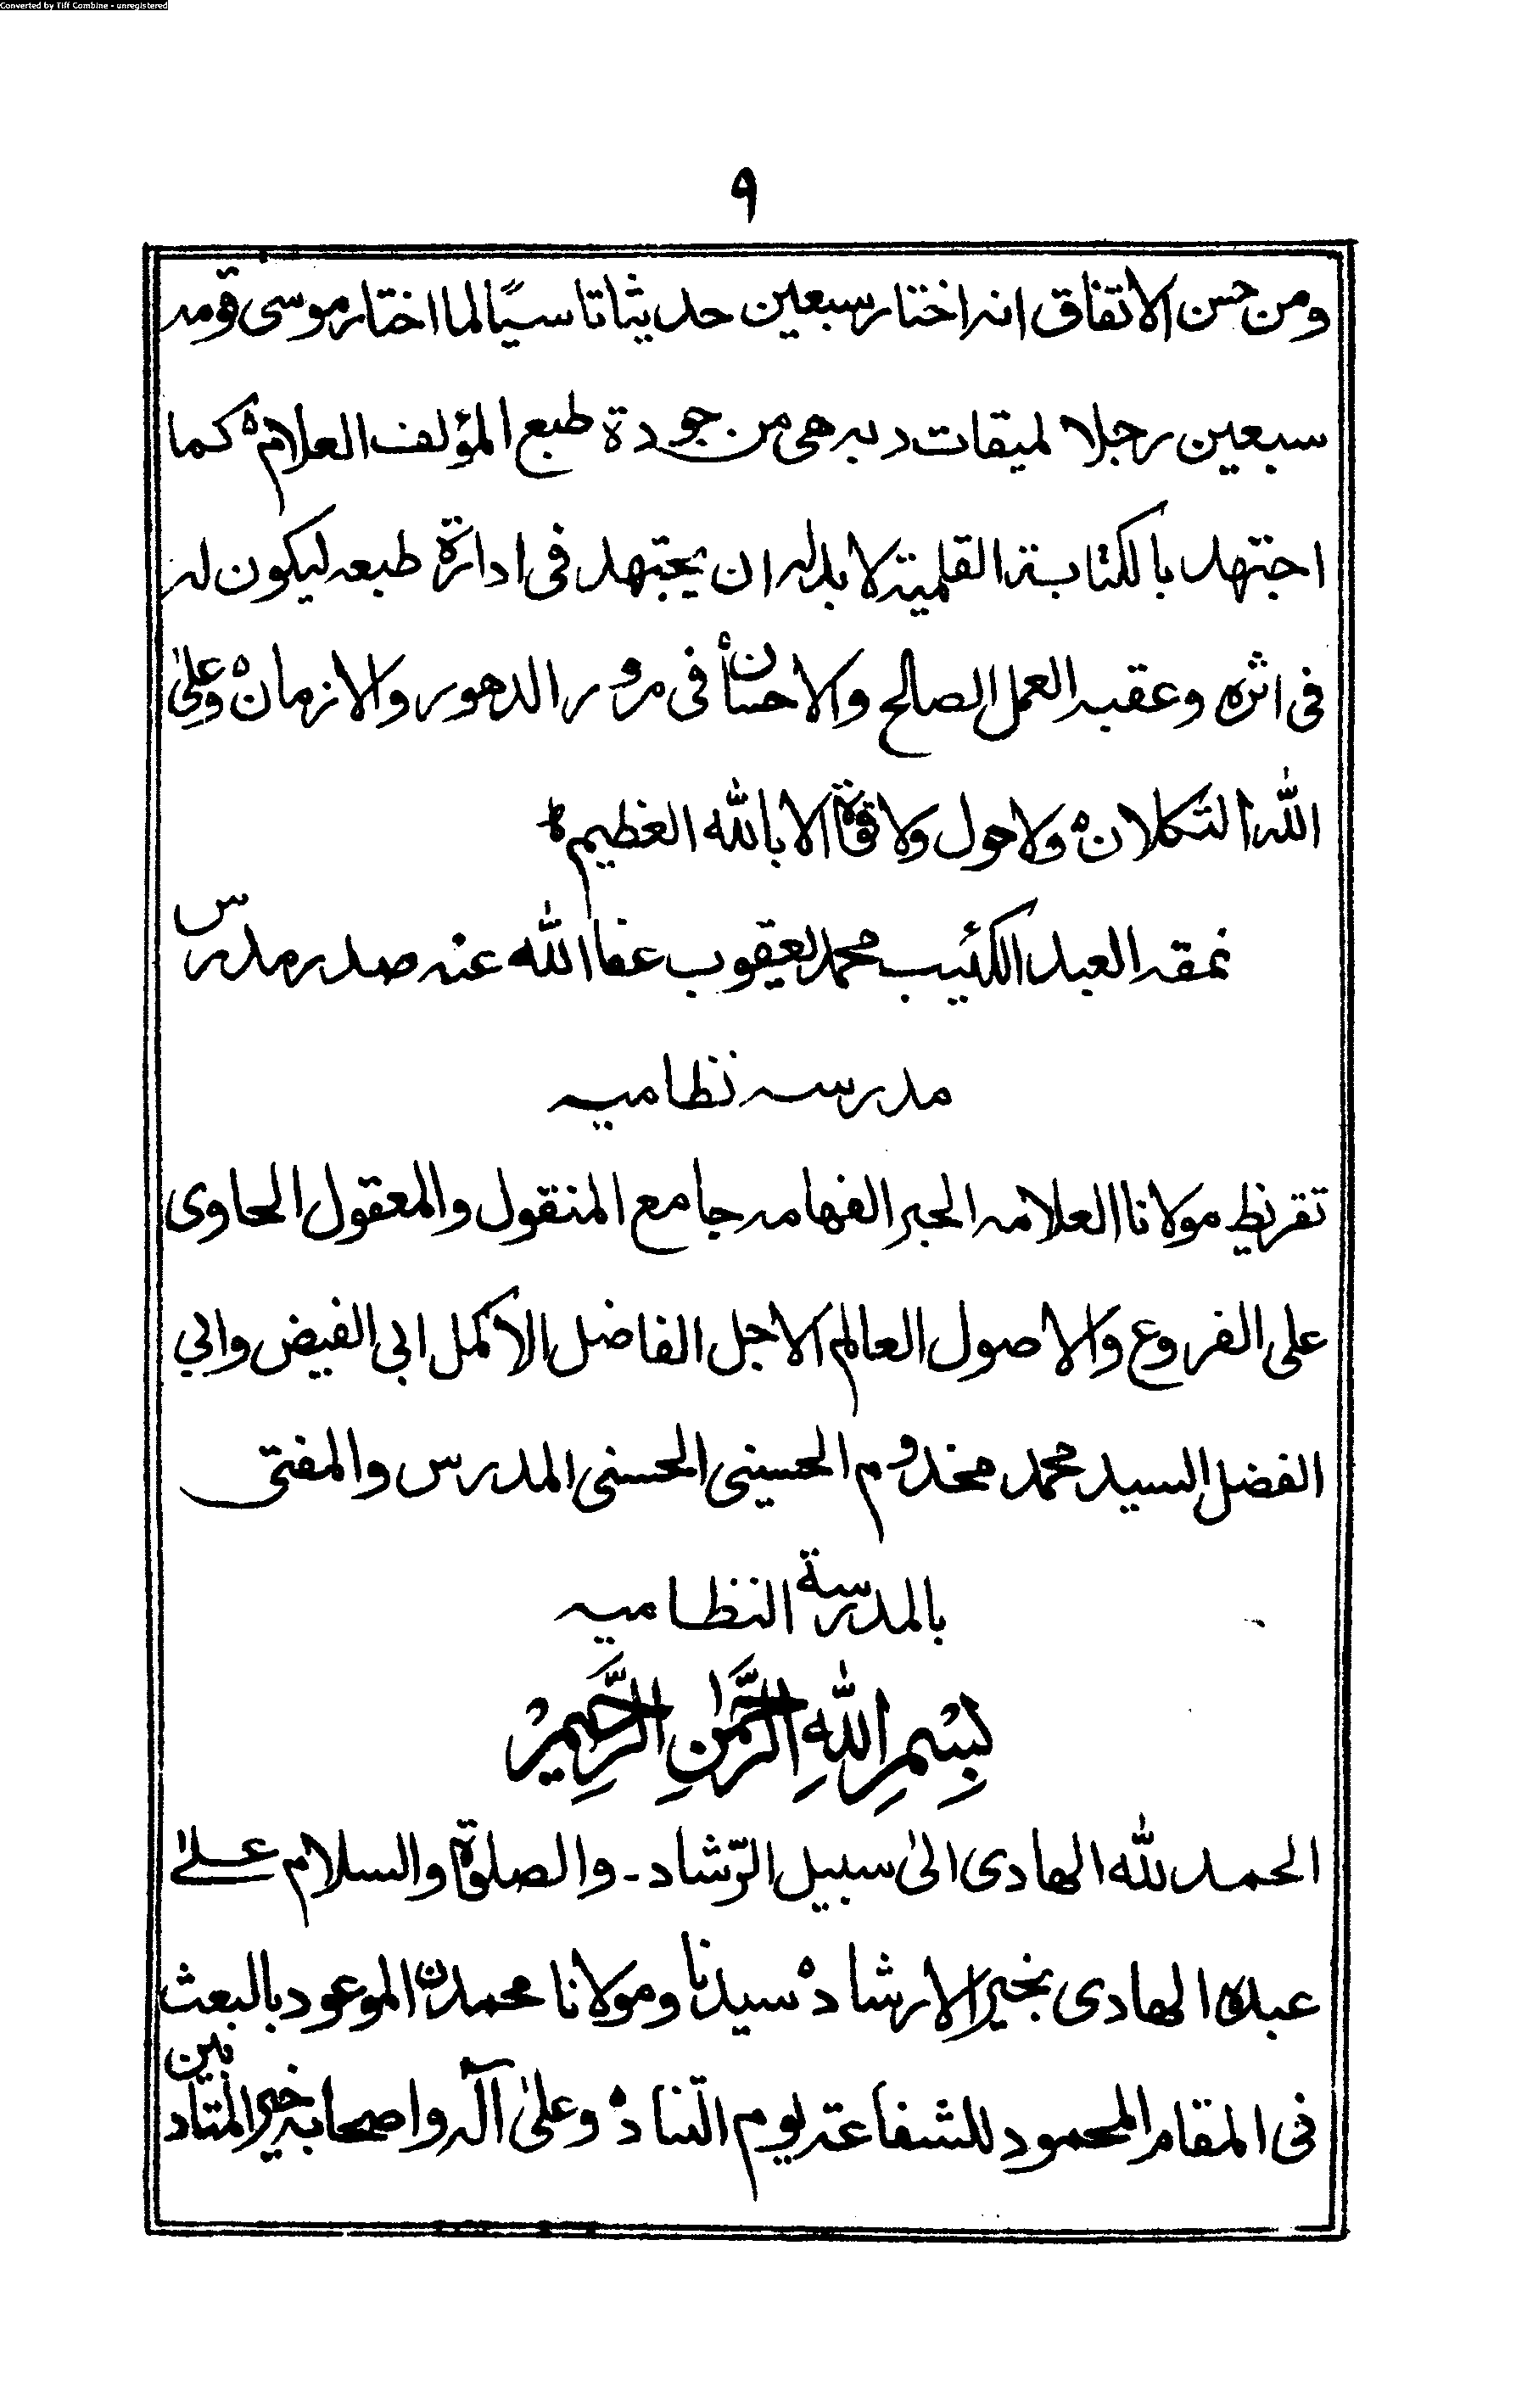 Converted by Tiff Combine - unregistered
٩
ومن حسن الاتفاق انه اختار سبعين حديثا تاسيًا لما اختار موسى قومه
سبعين رجلا لميقات ربه هى من جودة طبع المؤلف العلام ہ كما
اجتهد بالكتابة القلمية لا بد له ان يجتهد فى ادارة طبعه ليكون له
فى اثره وعقبه العمل الصالح والاحسان ہ فى مرور الدهور والازمان ہ وعلىٰ
الله التكلان ہ ولا حول ولا قوة الا بالله العظيم ہ
نمقه العبد الكئيب محمد يعقوب عفا الله عنه صدر مدرس
مدرسه نظاميه
تقريظ مولانا العلامه الحبر الفهامه جامع المنقول والمعقول الحاوى
على الفروع والاصول العالم الاجل الفاضل الاكمل ابى الفيض وابي
الفضل السيد محمد مخدوم الحسينى الحسنى المدرس والمفتى
بالمدرسة النظاميه
بِسْمِ اللهِ الرَّحْمٰنِ الرَّحِيْمِ
الحمد لله الهادى الىٰ سبيل الرّشاد ۔ والصلوة والسلام علىٰ
عبده الهادى بخير الارشاد ہ سيدنا ومولانا محمدن الموعود بالبعث
فى المقام المحمود للشفاعة يوم التناد ہ وعلىٰ آله واصحابه خير المتادبين